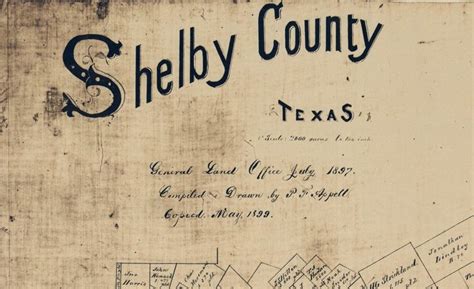 Shelby County
TEXAS
Scale 2000 varas to the inch
General Land Office July 1897.
Compiled & Drawn by P. F. Appell.
Copied May, 1899.
Jonathan
Lindley
Strickland
Jno
Harris
John